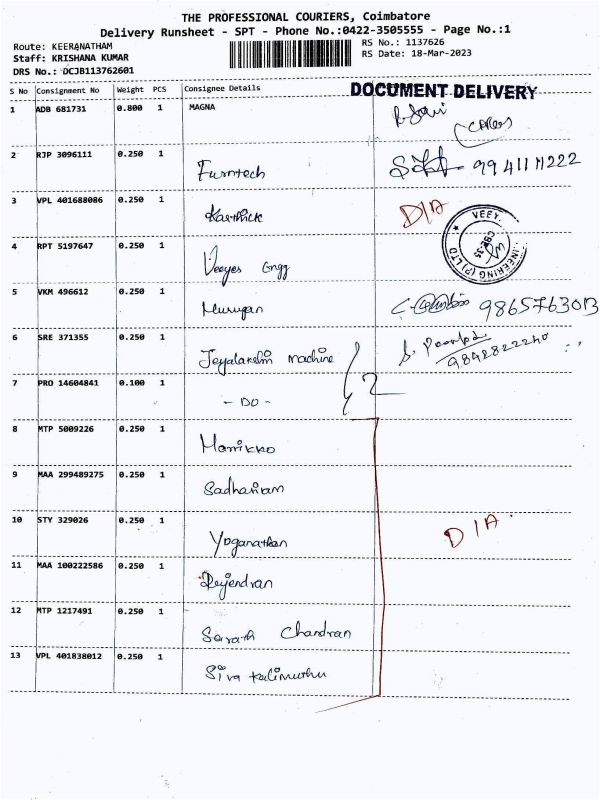 THE PROFESSIONAL COURIERS, Coimbatore
Delivery Runsheet - SPT - Phone No.:0422-3505555 - Page No.:1
Route: KEERANATHAM
RS No.: 1137626
Staff: KRISHANA KUMAR
RS Date: 18-Mar-2023
DRS No.: DCJB113762601
S No Consignment No Weight PCS Consignee Details
DOCUMENT DELIVERY
1 ADB 681731 0.800 1 MAGNA
2 RJP 3096111 0.250 1 Furntech 9941111222
3 VPL 401688086 0.250 1 Karthick D/A
VEEY
CBE-35
INEERING (P) LTD
4 RPT 5197647 0.250 1 Veeyes Engg
5 VKM 496612 0.250 1 Murugan 9865763013
6 SRE 371355 0.250 1 Jeyalakshmi machine 9842822240
7 PRO 14604841 0.100 1 - DO - 2
8 MTP 5009226 0.250 1 Manikko
9 MAA 299489275 0.250 1 Sadhanam
10 STY 329026 0.250 1 Yoganathan D/A
11 MAA 100222586 0.250 1 Rejendran
12 MTP 1217491 0.250 1 Sarath Chandran
13 VPL 401838012 0.250 1 Siva Kalimuthu